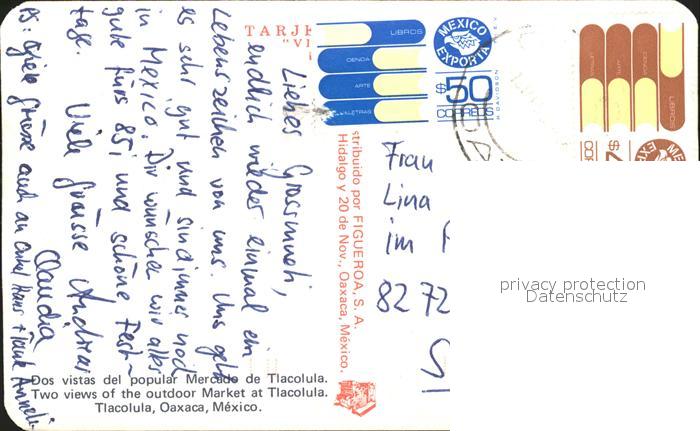 TARJE
"VI
Liebes Grossmueti,
endlich wieder einmal ein
Lebenszeichen von uns. Uns geht
es sehr gut und sind immer noch
in Mexico. Dir wünschen wir alles
gute fürs 85i und schöne Fest-
tage. Viele Grüsse Andreas
Claudia
PS: Viele Grüsse auch an Onkel Hans + Tante Anneli
LIBROS
CIENCIA
ARTE
LETRAS
MEXICO
EXPORTA
$50
CORREOS
H. DAVIDSON
LETRAS
ARTE
CIENCIA
LIBROS
Frau
Lina
im
8272
stribuido por FIGUEROA, S. A.
Hidalgo y 20 de Nov., Oaxaca, México.
privacy protection
Datenschutz
Dos vistas del popular Mercado de Tlacolula.
Two views of the outdoor Market at Tlacolula.
Tlacolula, Oaxaca, México.